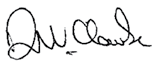 DW Clarke